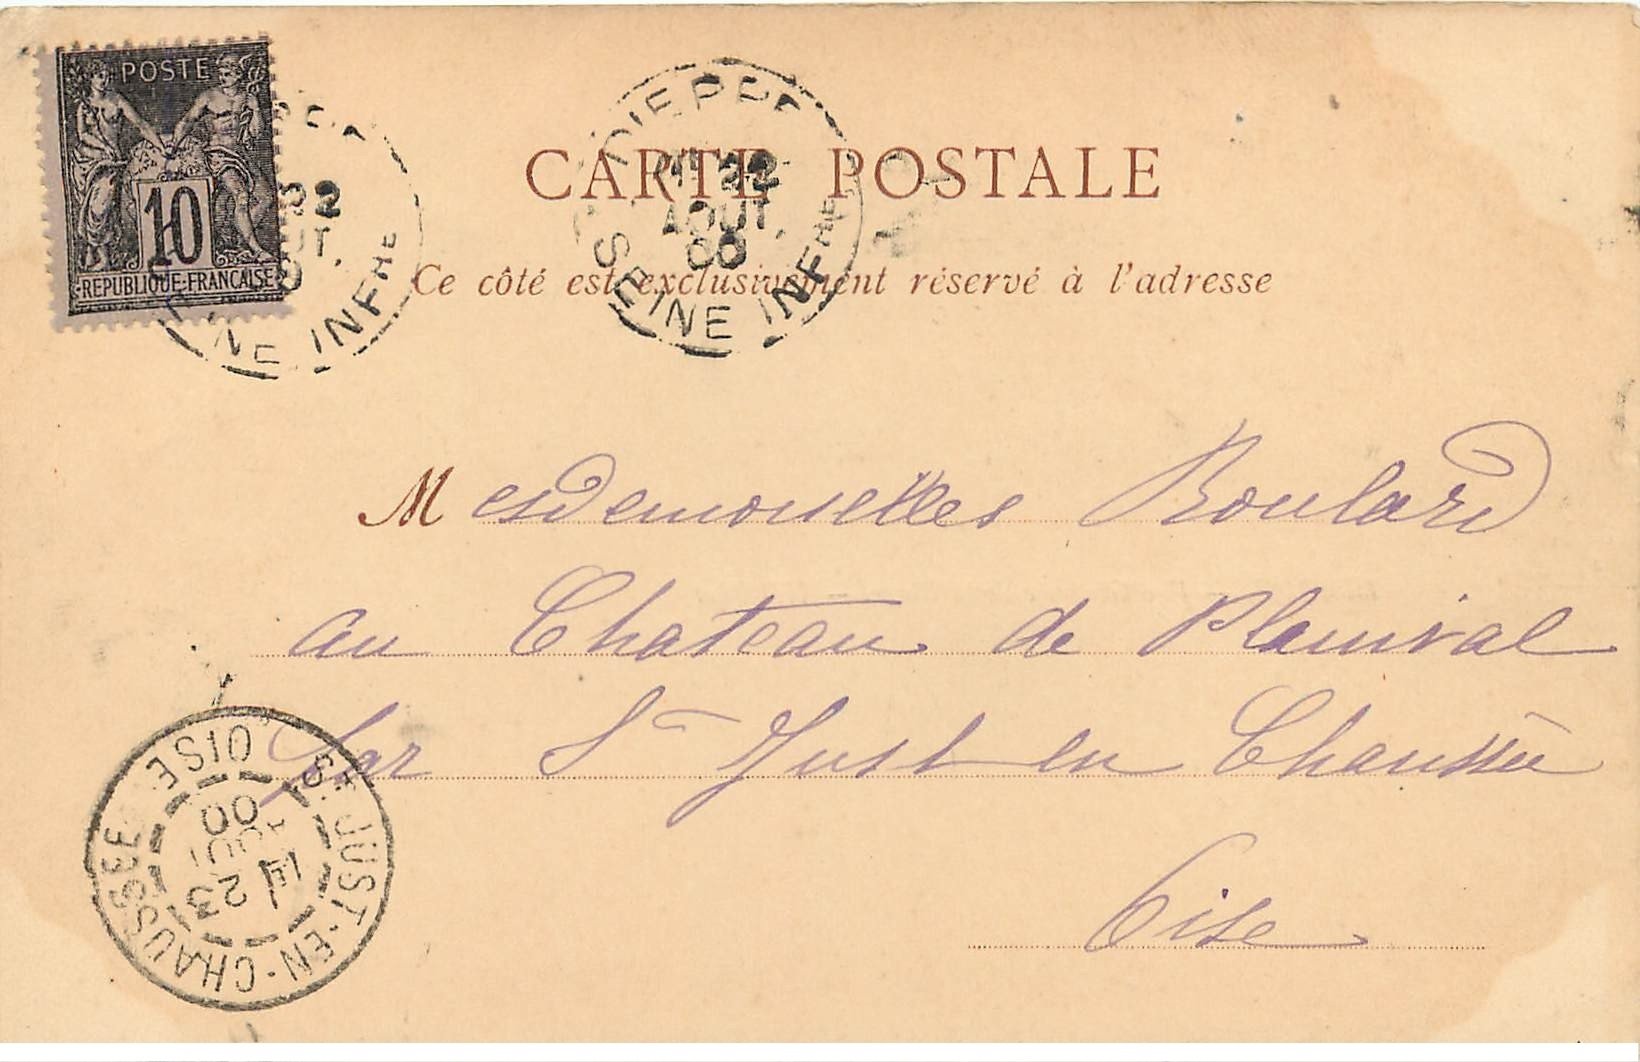 POSTE
10
REPUBLIQUE FRANCAISE
22
INE INFRE
DIEPPE
22
AOUT
00
SEINE INFRE
CARTE POSTALE
Ce côté est exclusivement réservé à l'adresse
Mesdemoiselles Boulard
au Chateau de Plainval
par St Just en Chaussée
Oise
ST JUST-EN-CHAUSSEE OISE
1E
23
AOUT
00